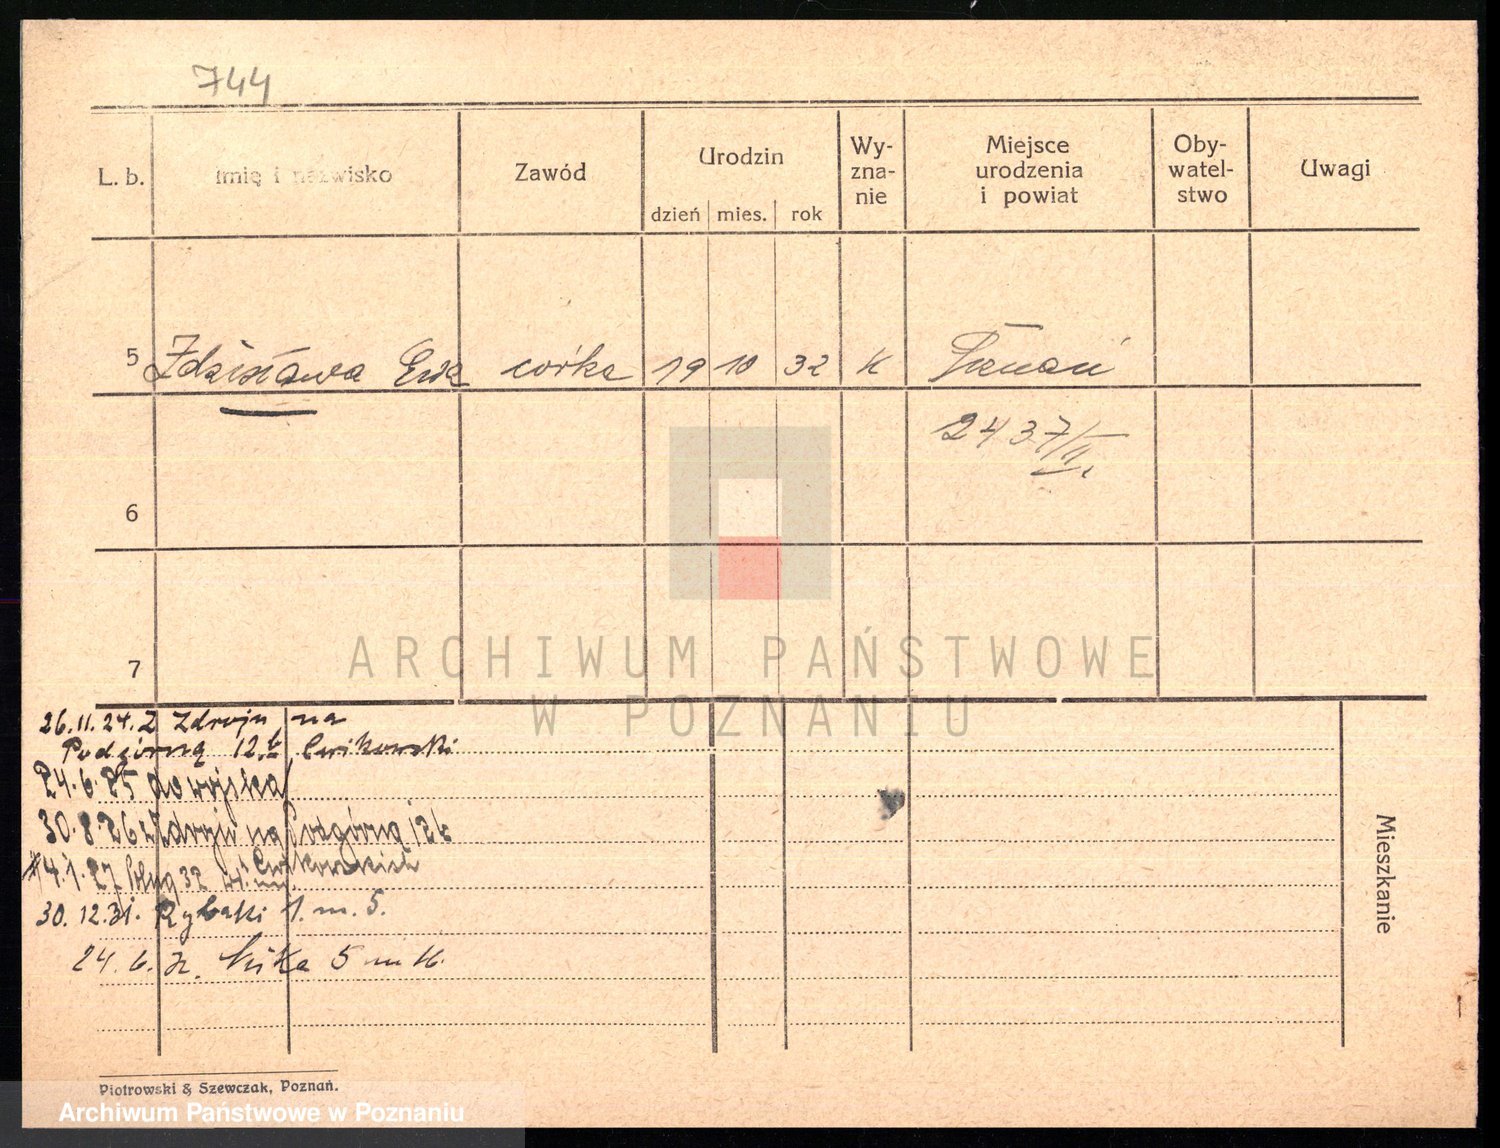 744
L. b.
Imię i nazwisko
Zawód
Urodzin
dzień mies. rok
Wy-
zna-
nie
Miejsce
urodzenia
i powiat
Oby-
watel-
stwo
Uwagi
5 Zdzisława Ewa córka 19 10 32 K Poznań
2437/II.
6
7
26.11.24. Z Zdroju na
Podgórną 12.b Ćwikowski
24.6.25 do wojska
30.8.26 z Zdroju na Podgórną 12b
14.1.27 32 Ćwikowskich
30.12.31. Rybaki 1. m. 5.
24.6. 5 m
Mieszkanie
Piotrowski & Szewczak, Poznań.
ARCHIWUM PAŃSTWOWE
W POZNANIU
Archiwum Państwowe w Poznaniu